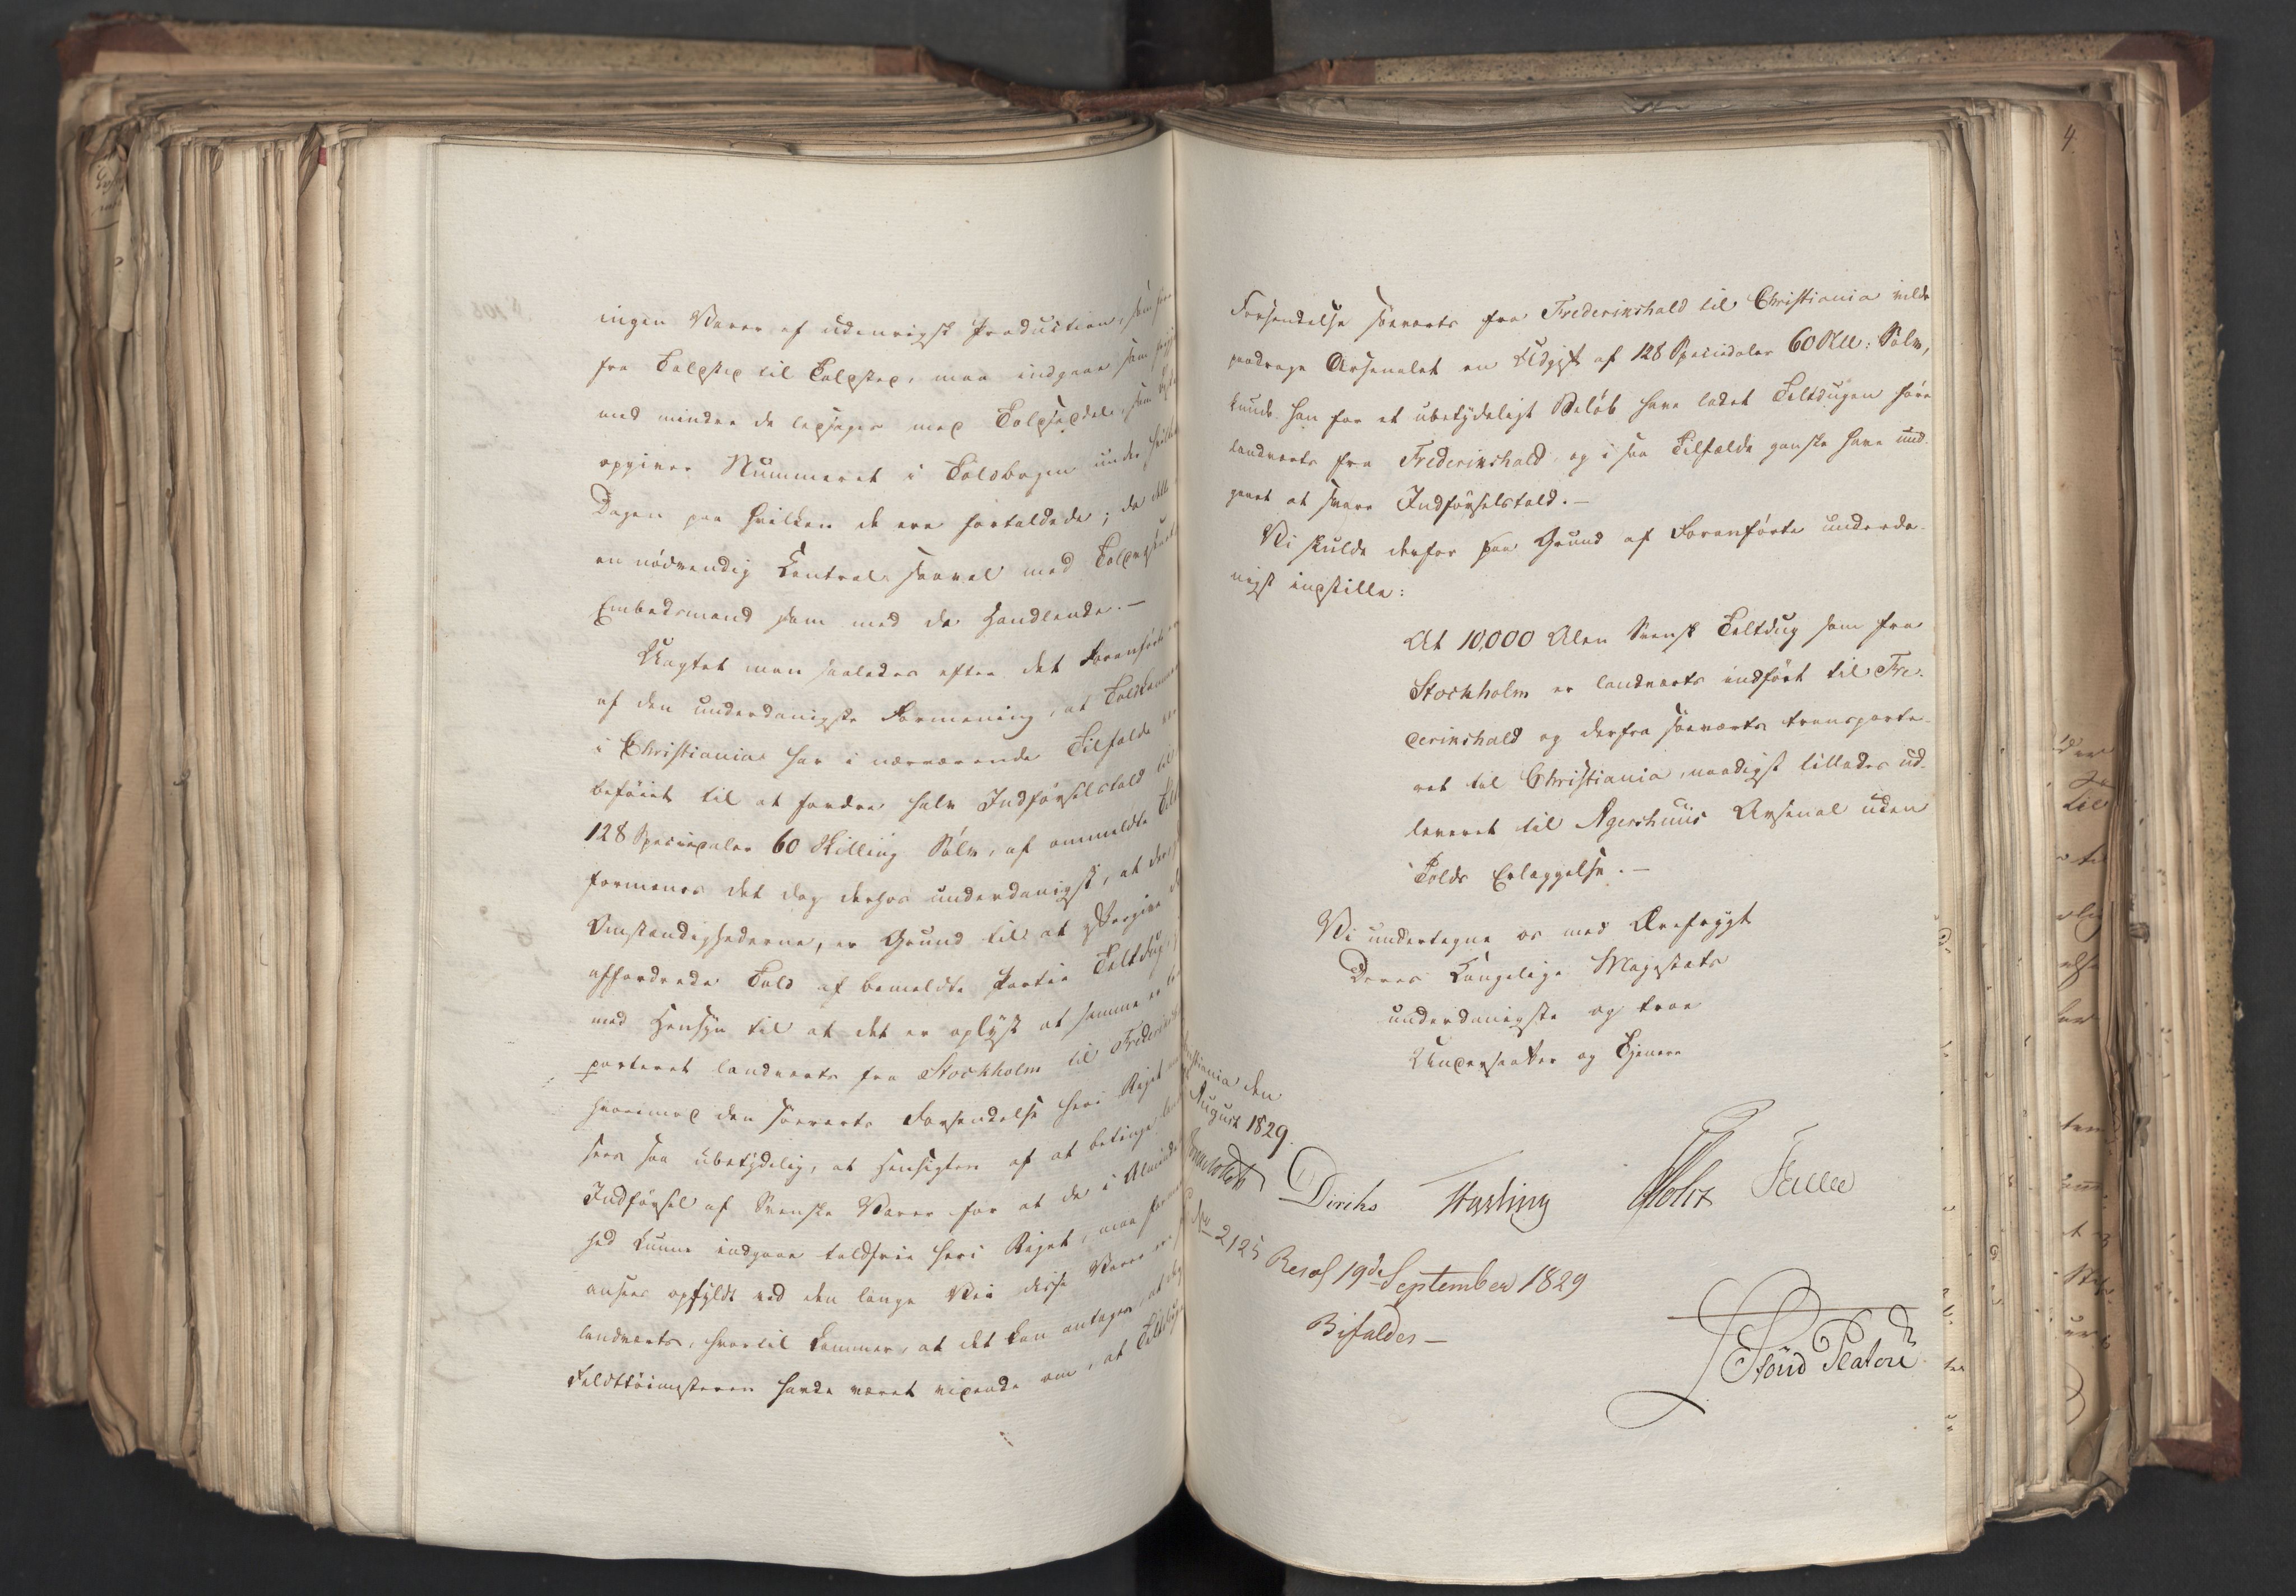 ingen Varer af udenrigsk Production, som
fra Toldsted til Toldsted, maa indgaae som
med mindre de ledsages med Toldseddel, som
opgiver Nummeret i Toldbogen under
Dagen paa hvilken de ere fortoldede; da dette
en nödvendig Control saavel med
Embedsmænd som med de Handlende. —
Uagtet man saaledes efter det Foranförte
af den underdanigste Formening, at
i Christiania har i nærværende Tilfælde
beföiet til at fordre halv Indförselstold
128 Speciedaler 60 Skilling Sölv, af ommeldte
formenes det dog derhos underdanigst, at
Omstændighederne, er Grund til at eftergive
affordrede Told af bemeldte Partie Teltdug
med Hensyn til at det er oplyst at samme er
porteret landværts fra Stockholm til
hvorimod den söeværts Forsendelse heri Riget
sees saa ubetydelig, at Hensigten af at betinge
Indförsel af Svenske Varer for at de i
hed kunne indgaae toldfrie heri Riget, maa
ansees opfyldt ved den lange Vei disse Varer
landværts, hvortil kommer, at det kan antages, at
Feldttöimesteren havde været vidende om, at
Forsendelse söeværts fra Frederikshald til Christiania vilde
paadrage Arsenalet en Udgift af 128 Speciedaler 60 Skll: Sölv,
kunde han for et ubetydeligt Belöb have ladet Teltdugen före
landværts fra Frederikshald og i saa Tilfælde ganske have und-
gaaet at svare Indförselstold. —
Vi skulde derfor paa Grund af Foranförte underda-
nigst indstille:
At 10,000 Alen Svensk Teltdug som fra
Stockholm er landværts indfört til Fre-
derikshald og derfra söeværts transporte-
ret til Christiania, naadigst tillades ud-
leveret til Agershuus Arsenal uden
Tolds Erlæggelse. —
Vi undertegne os med Ærefrygt
Deres Kongelige Majestæts
underdanigste og troe
Undersaatter og Tjenere
den
August 1829.
Diriks Hasling Holst
2125
Resol 19de September 1829
Bifaldes —